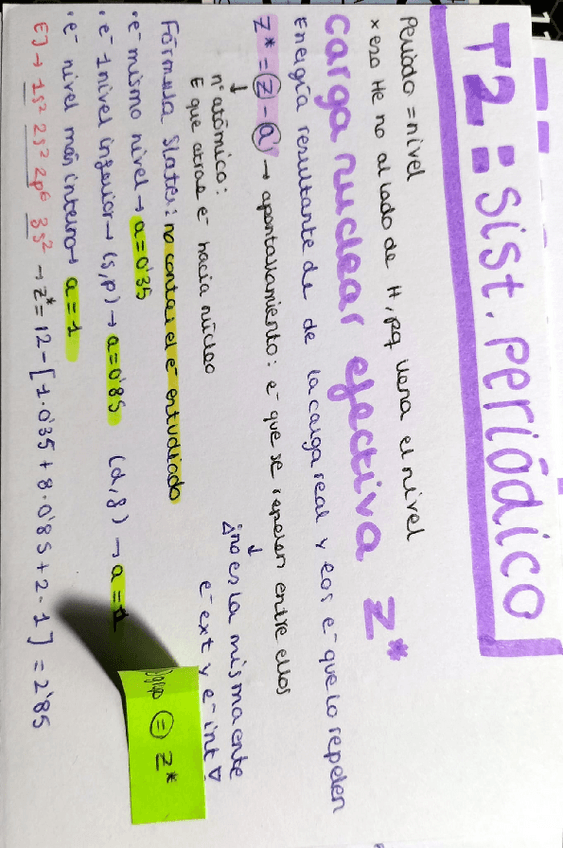 T2: Sist. periódico
Periodo = nivel
x eso He no al lado de H, pq llena el nivel
carga nuclear efectiva Z*
Energía resultante de de la carga real y los e⁻ que lo repelen
Z* = Z - a → apantallamiento: e⁻ que se repelen entre ellos
↓
nº atómico:
E que atrae e⁻ hacia núcleo
↓
¡no es la misma ente
e⁻ ext y e⁻ int!
Fórmula Slater: no contar el e⁻ estudiado
· e⁻ mismo nivel → a = 0'35
· e⁻ 1 nivel inferior → (s, p) → a = 0'85 (d, f) → a = 1
· e⁻ nivel más interno → a = 1
EJ → 1s² 2s² 2p⁶ 3s² → Z* = 12 - [1·0'35 + 8·0'85 + 2·1] = 2'85
= Z*